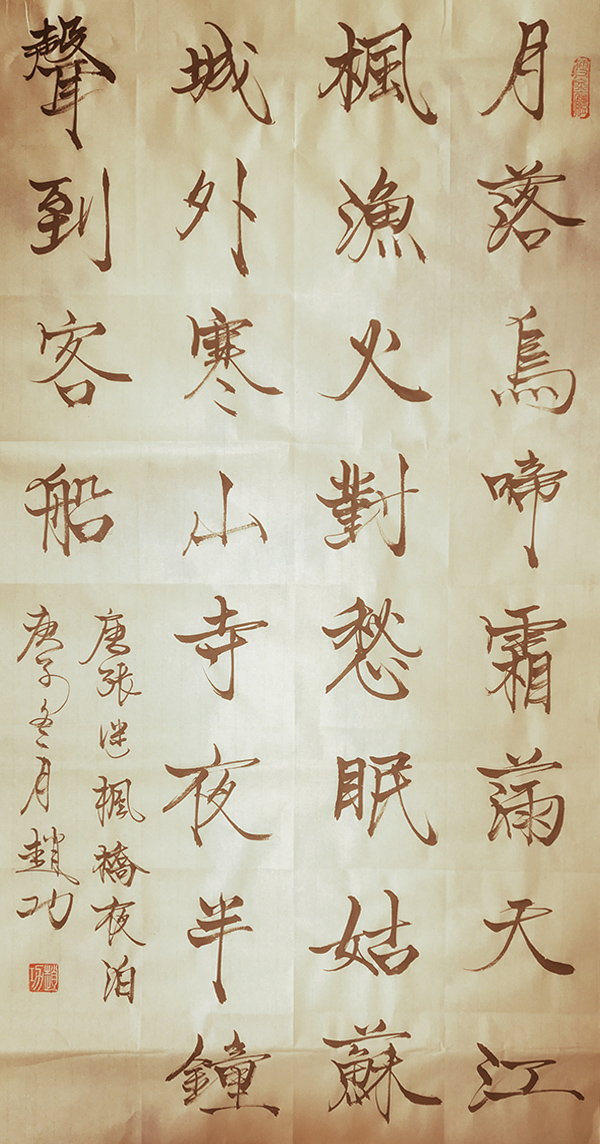 月落烏啼霜滿天江
楓漁火對愁眠姑蘇
城外寒山寺夜半鐘
聲到客船
唐張继楓橋夜泊
庚子冬月趙功
趙功